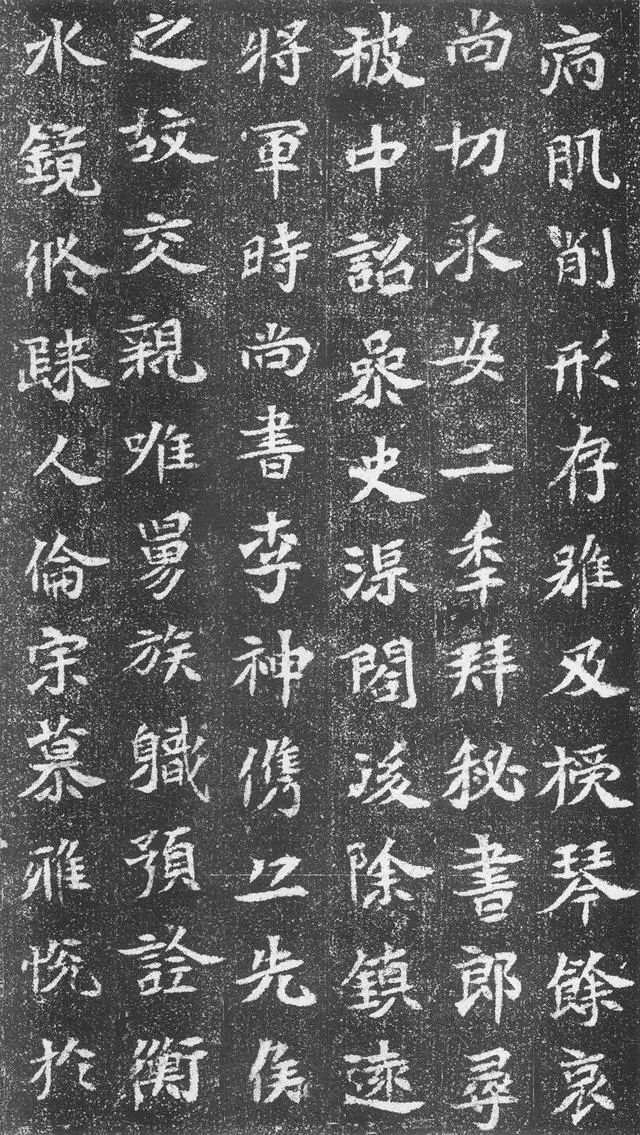 病肌削形存雖及榠琴餘哀
尚切永安二秊拜秘書郎尋
被中詔叅史渠閣後除鎮遠
將軍時尚書李神儁以先侯
之故交親唯舅族職預詮衡
水鏡脩疎人倫宗慕雅悦於